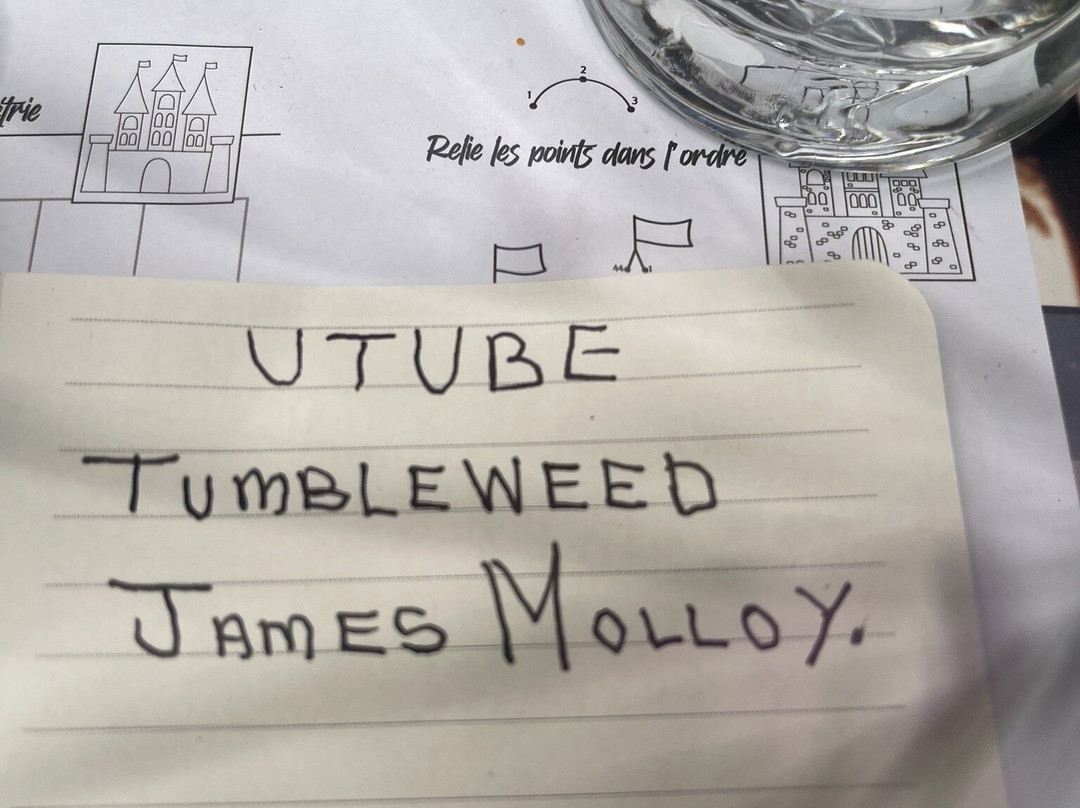 trie
1 2 3
Relie les points dans l'ordre
44 1
UTUBE
TUMBLEWEED
JAMES MOLLOY.